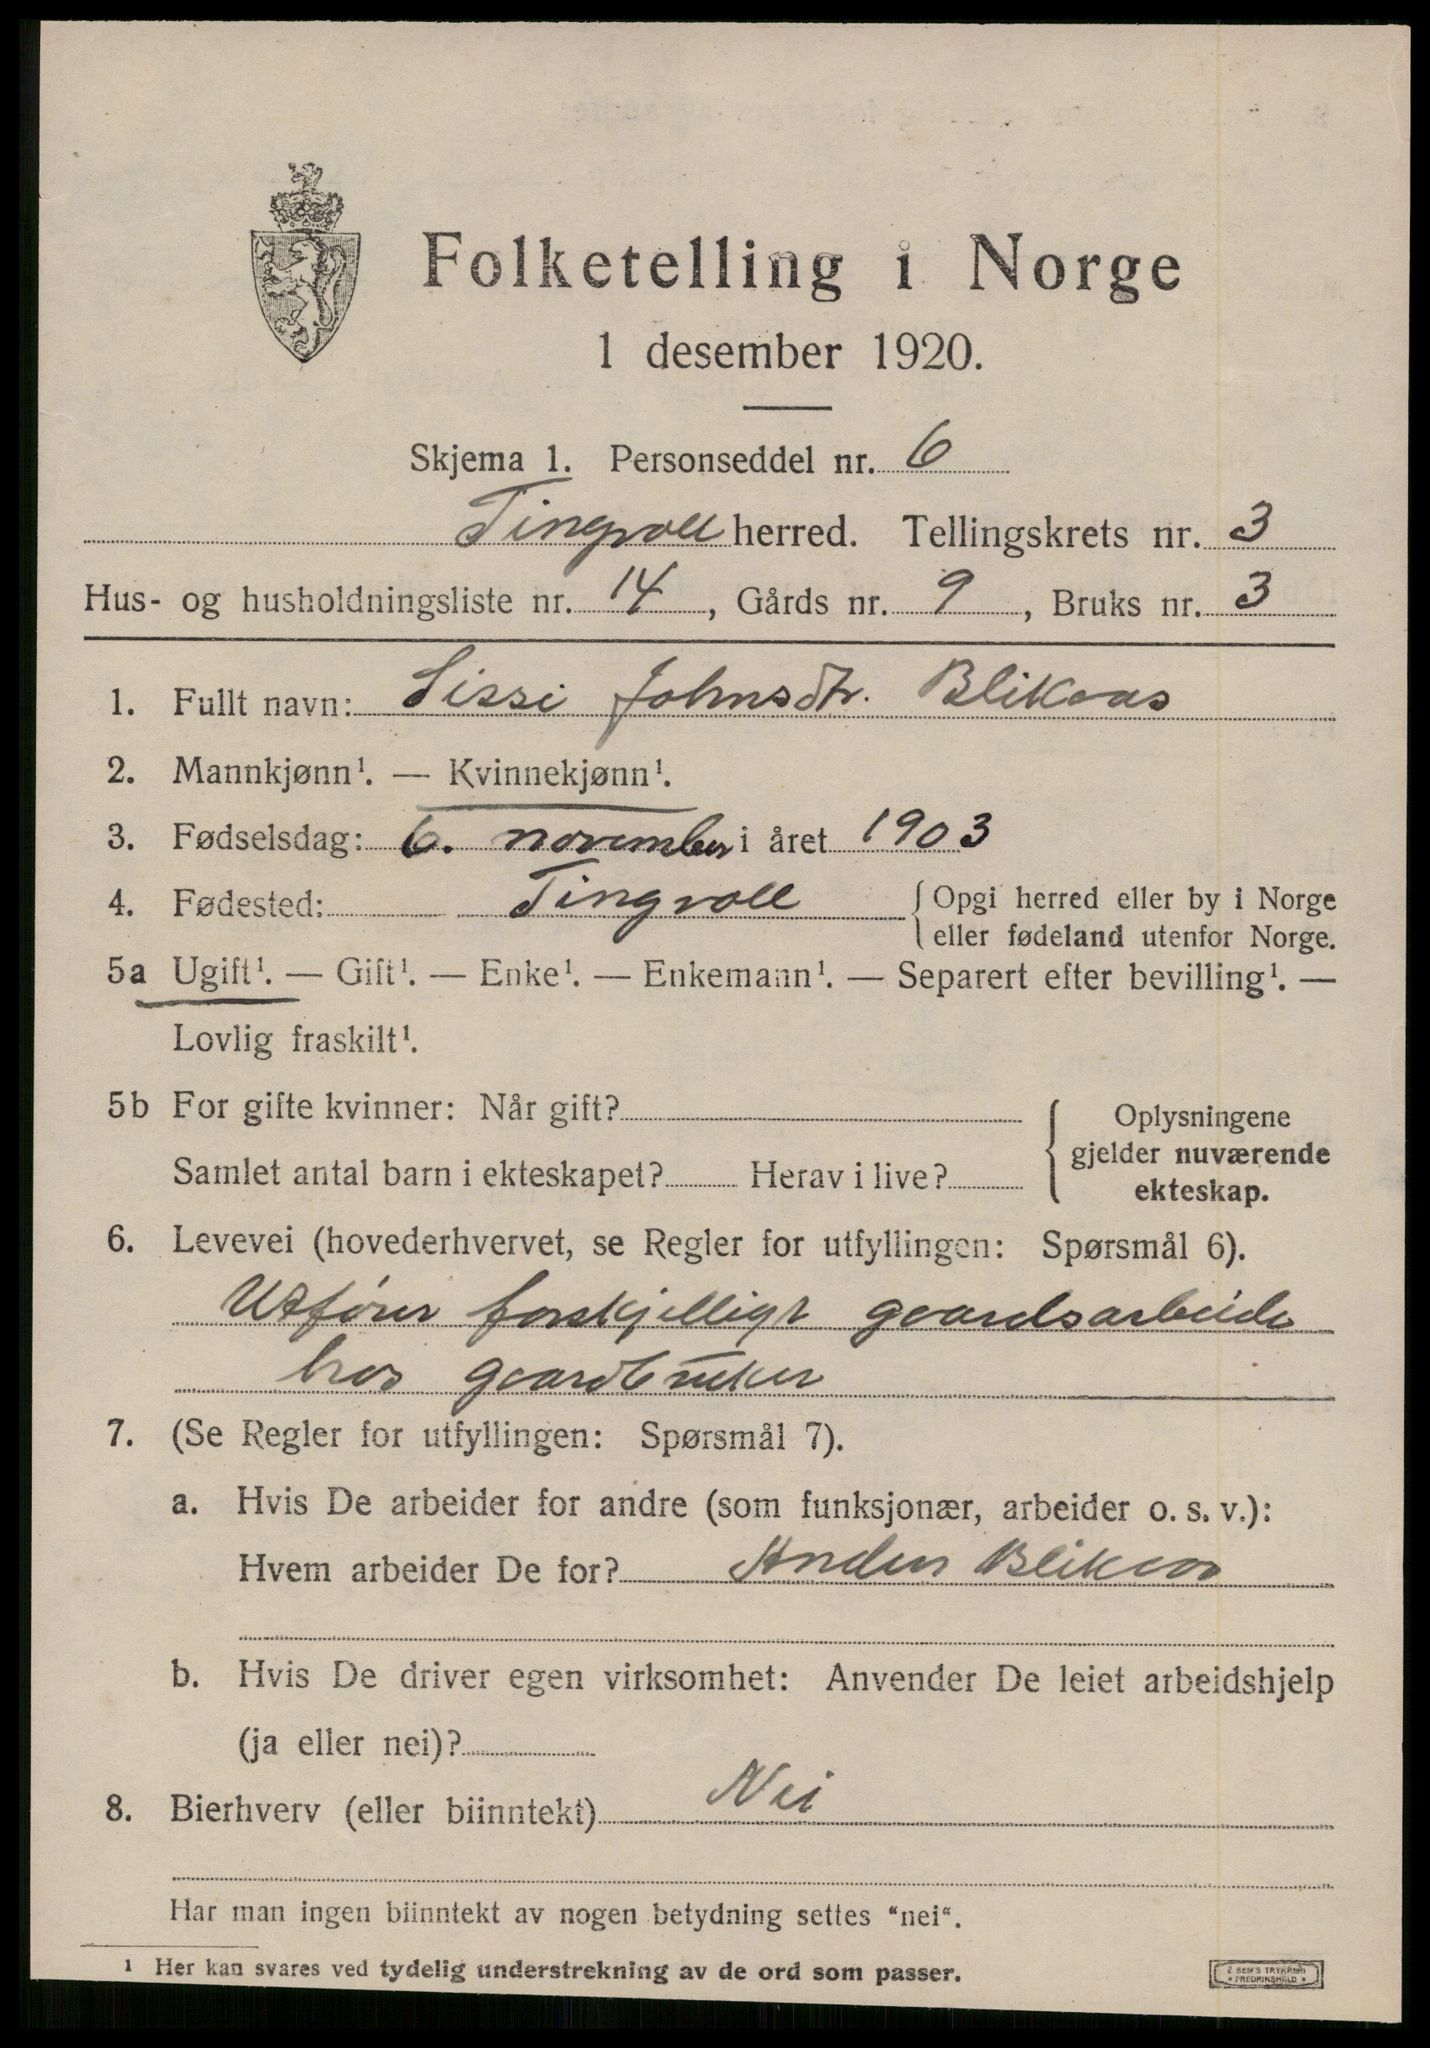 Folketelling i Norge
1 desember 1920.
Skjema 1. Personseddel nr. 6
Tingvoll herred. Tellingskrets nr. 3
Hus- og husholdningsliste nr. 14, Gårds nr. 9, Bruks nr. 3
1. Fullt navn: Sissi Johnsdtr. Blikaas
2. Mannkjønn¹. — Kvinnekjønn¹.
3. Fødselsdag: 6. november i året 1903
4. Fødested: Tingvoll { Opgi herred eller by i Norge
eller fødeland utenfor Norge.
5a Ugift¹. — Gift¹. — Enke¹. — Enkemann¹. — Separert efter bevilling¹. —
Lovlig fraskilt¹.
5b For gifte kvinner: Når gift?
Samlet antal barn i ekteskapet? Herav i live?
{ Oplysningene
gjelder nuværende
ekteskap.
6. Levevei (hovederhvervet, se Regler for utfyllingen: Spørsmål 6).
Utfører forskjelligt gaardsarbeide
hos gaardbruker
7. (Se Regler for utfyllingen: Spørsmål 7).
a. Hvis De arbeider for andre (som funksjonær, arbeider o. s. v.):
Hvem arbeider De for? Anders Blikaas
b. Hvis De driver egen virksomhet: Anvender De leiet arbeidshjelp
(ja eller nei)?
8. Bierhverv (eller biinntekt) Nei
Har man ingen biinntekt av nogen betydning settes "nei".
¹ Her kan svares ved tydelig understrekning av de ord som passer.
E. SEM'S TRYKKERI
• FREDRIKSHALD •